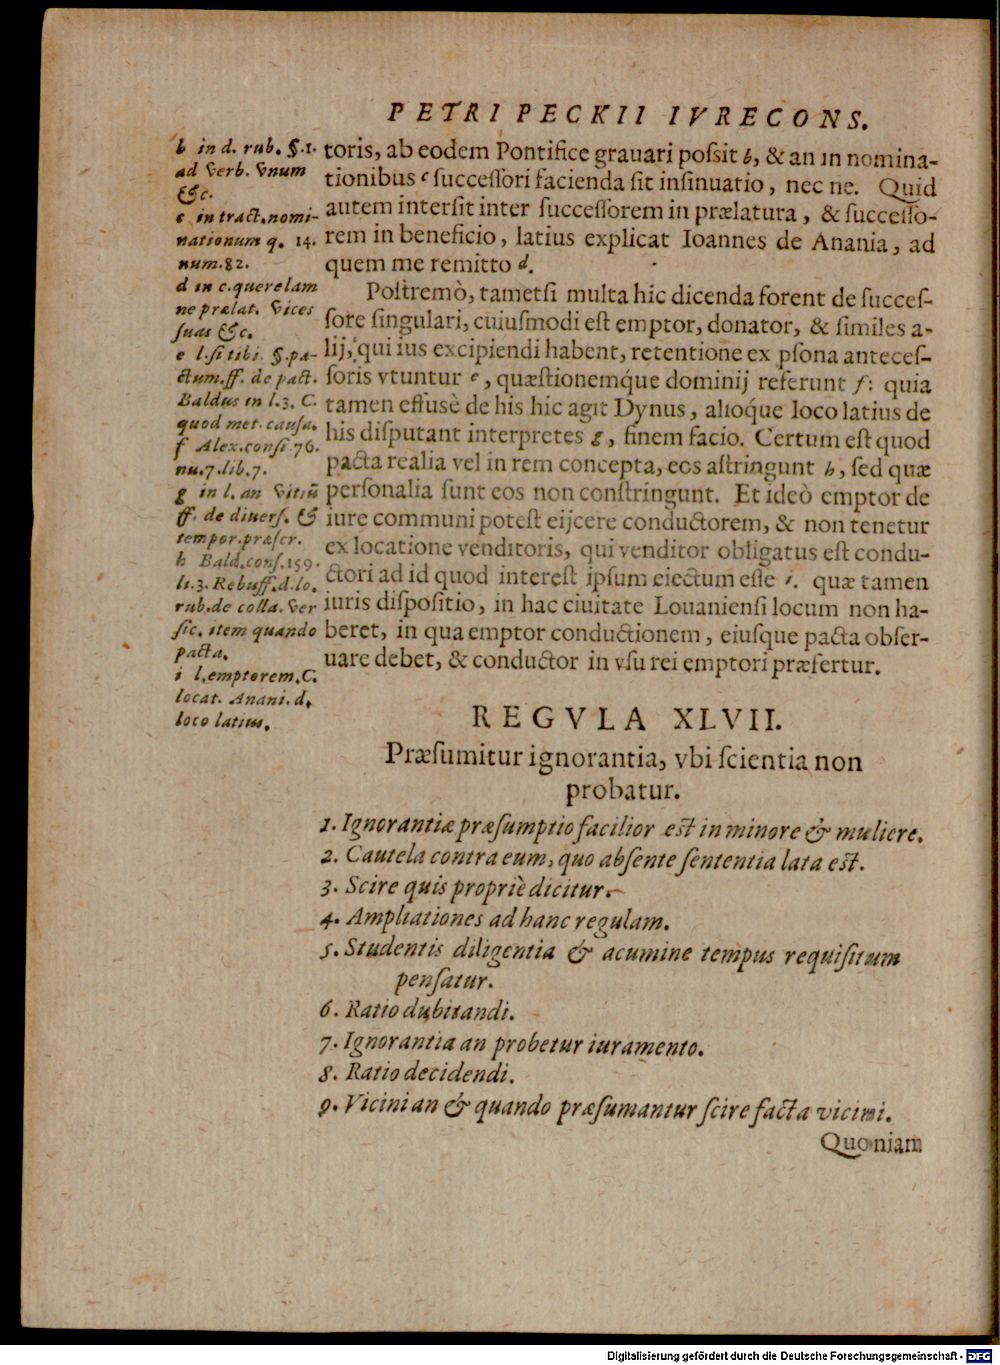 PETRI PECKII IVRECONS.
toris, ab eodem Pontifice grauari possit b, & an in nomina-
tionibus c successori facienda sit insinuatio, nec ne. Quid
autem intersit inter successorem in prælatura, & successo-
rem in beneficio, latius explicat Ioannes de Anania, ad
quem me remitto d.
Postremò, tametsi multa hic dicenda forent de succes-
sore singulari, cuiusmodi est emptor, donator, & similes a-
lij, qui ius excipiendi habent, retentione ex psona anteces-
soris vtuntur e, quæstionemq́ue dominij referunt f: quia
tamen effusè de his hic agit Dynus, alioq́ue loco latius de
his disputant interpretes g, finem facio. Certum est quod
pacta realia vel in rem concepta, eos astringunt h, sed quæ
personalia sunt eos non constringunt. Et ideò emptor de
iure communi potest eijcere conductorem, & non tenetur
ex locatione venditoris, qui venditor obligatus est condu-
ctori ad id quod interest ipsum eiectum esse i. quæ tamen
iuris dispositio, in hac ciuitate Louaniensi locum non ha-
beret, in qua emptor conductionem, eiusque pacta obser-
uare debet, & conductor in vsu rei emptori præfertur.
b in d. rub. §.1.
ad verb. vnum
&c.
c in tract. nomi-
nationum q. 14.
num.82.
d in c.querelam
ne prælat. vices
suas &c.
e l.si tibi. §.pa-
ctum.ff. de pact.
Baldus in l.3. C.
quod met. causa.
f Alex.consi 76.
nu.7.lib.7.
g in l. an vitiū
ff. de diuers. &
tempor.præscr.
h Bald.cons.159.
li.3. Rebuff.d.lo.
rub.de colla. ver
sic. item quando
pacta.
i l.emptorem.C.
locat. Anani. d.
loco latius.
REGVLA XLVII.
Præsumitur ignorantia, vbi scientia non
probatur.
1. Ignorantiæ præsumptio facilior est in minore & muliere.
2. Cautela contra eum, quo absente sententia lata est.
3. Scire quis propriè dicitur.
4. Ampliationes ad hanc regulam.
5. Studentis diligentia & acumine tempus requisitum
pensatur.
6. Ratio dubitandi.
7. Ignorantia an probetur iuramento.
8. Ratio decidendi.
9. Vicini an & quando præsumantur scire facta vicini.
Quoniam
Digitalisierung gefördert durch die Deutsche Forschungsgemeinschaft - DFG